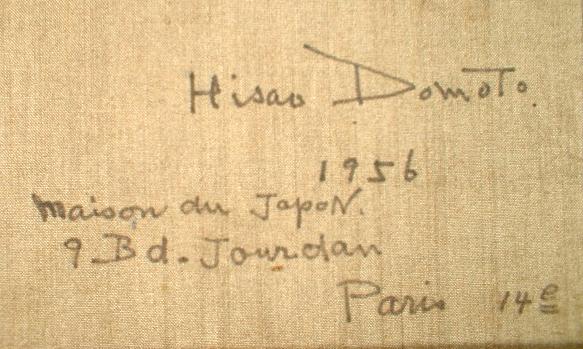 Hisao Domoto.
1956
Maison du Japon.
9 Bd. Jourdan
Paris 14e